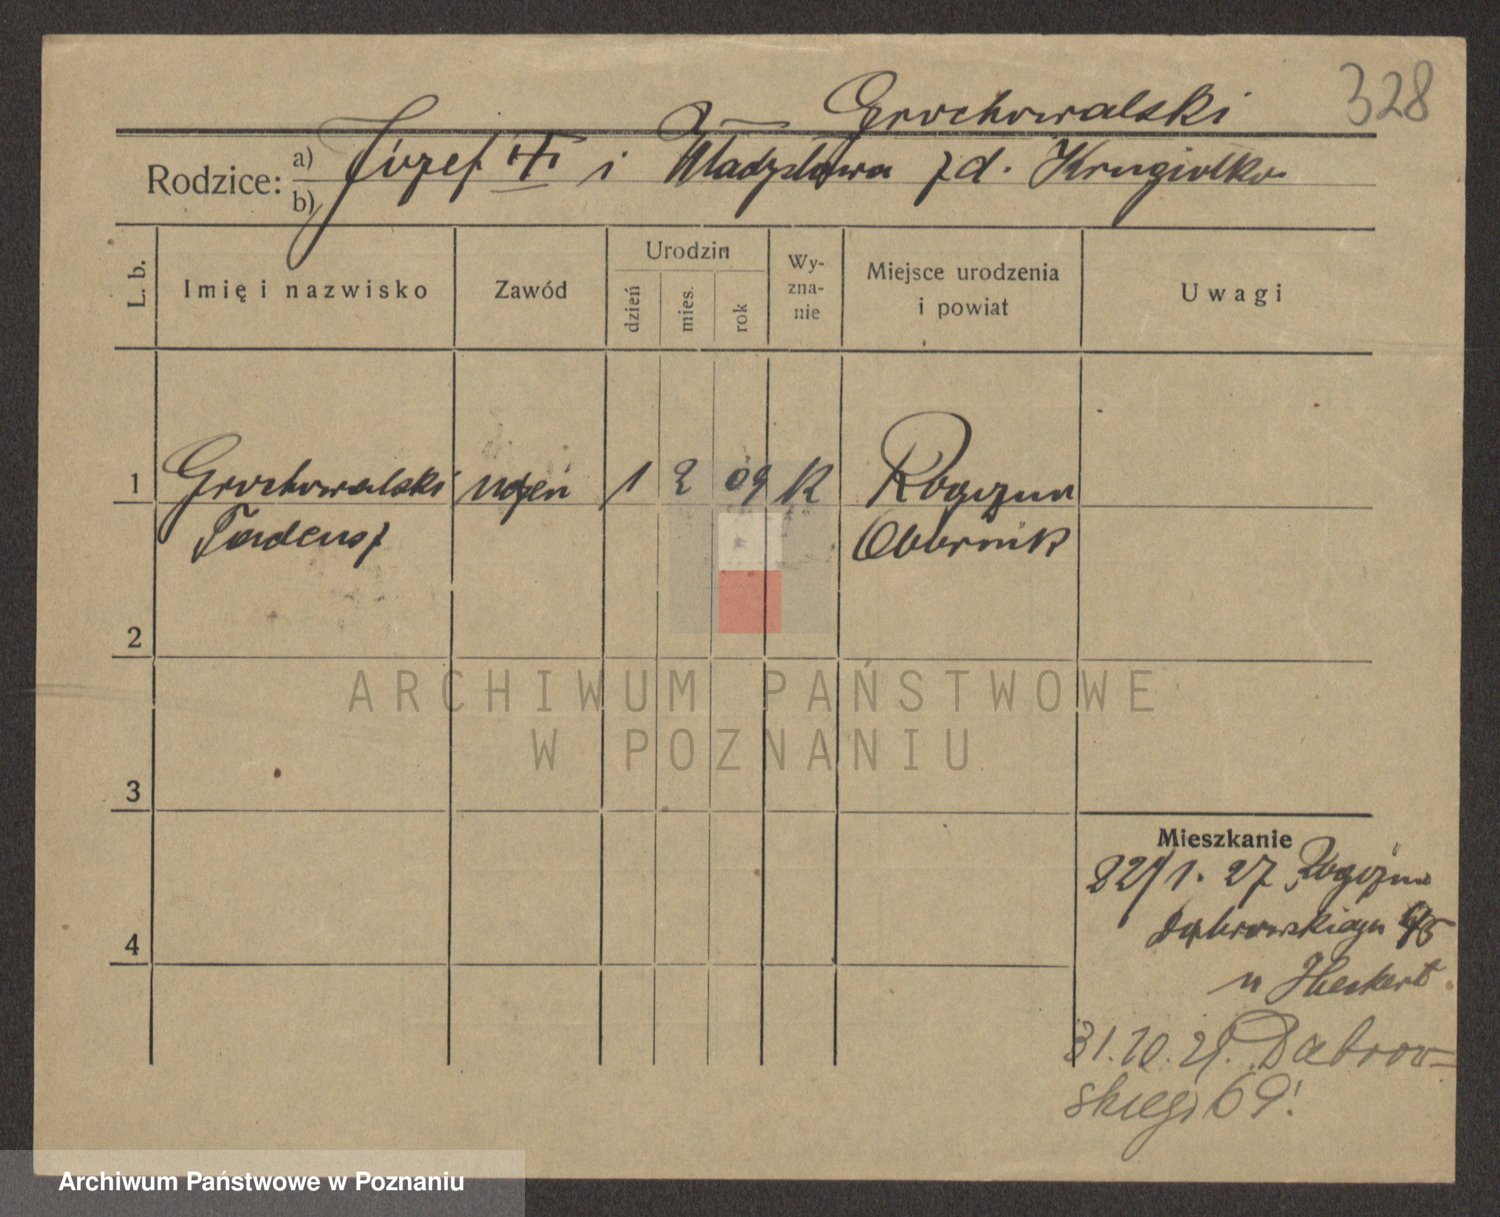 328
Grochowalski
Rodzice: a) Józef i Władysława z d.
b)
L. b.
Imię i nazwisko
Zawód
Urodzin
dzień
mies.
rok
Wy-
zna-
nie
Miejsce urodzenia
i powiat
Uwagi
1 Grochowalski uczeń 1 2 09 K Rogoźno
Tadeusz Obornik
2
ARCHIWUM PAŃSTWOWE
W POZNANIU
3
Mieszkanie
1. 27 Rogoźno
4
u
31.10. Dabrow=
skiego 69.
Archiwum Państwowe w Poznaniu